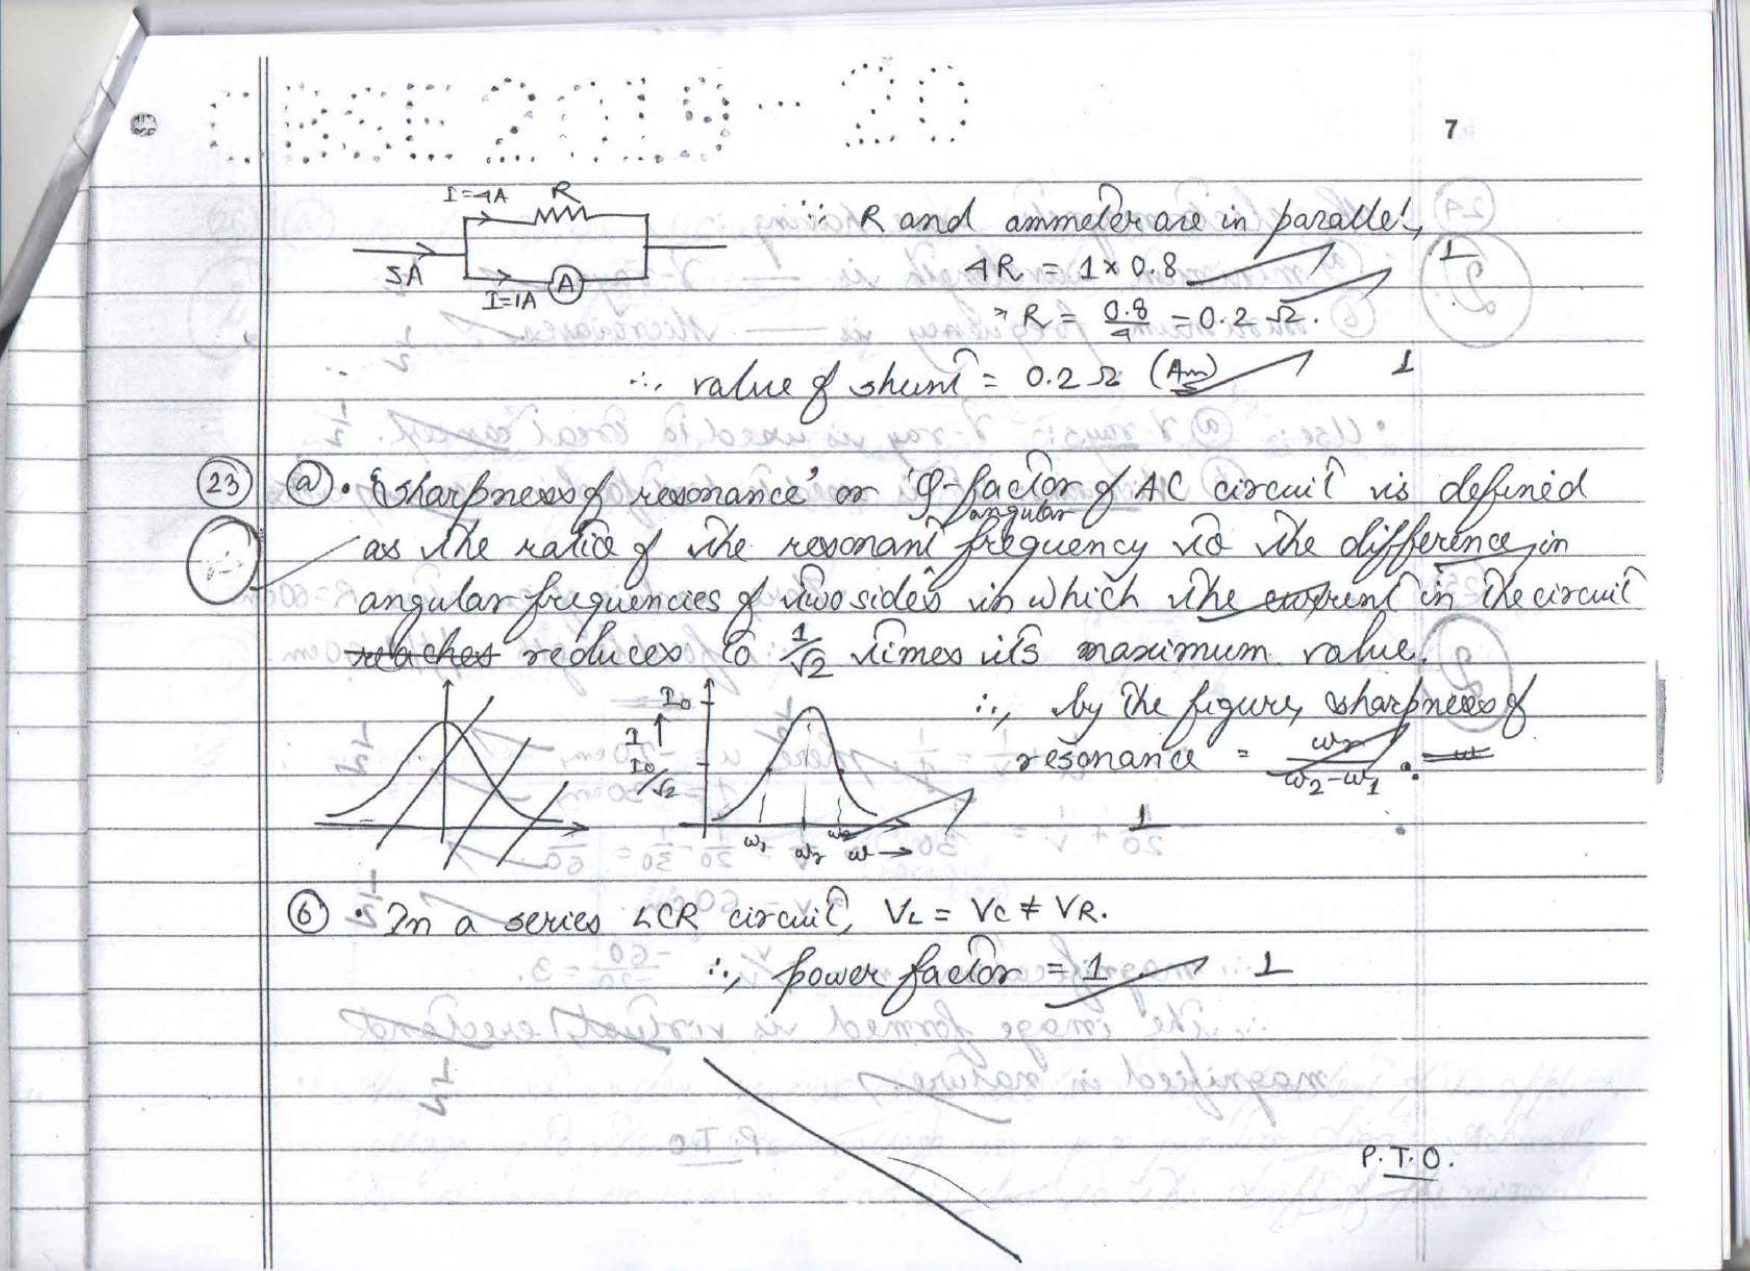 CBSE 2019-20
7
I=4A R
5A
I=1A A
∵ R and ammeter are in parallel,
4R = 1 × 0.8
⇒ R = 0.8/4 = 0.2 Ω.
1
2
∴ value of shunt = 0.2 Ω (Ans)
1
23 (a) • 'Sharpness of resonance' or 'Q-factor of AC circuit is defined
as the ratio of the resonant angular frequency to the difference in
angular frequencies of two sides in which the current in the circuit
reaches reduces to 1/√2 times its maximum value.
I0
I ↑
I0/√2
ω1 ωr ω2 ω →
∴, by the figure, sharpness of
resonance = ωr/(ω2-ω1).
1
(b) • In a series LCR circuit, VL = VC ≠ VR.
∴, power factor = 1
1
P.T.O.